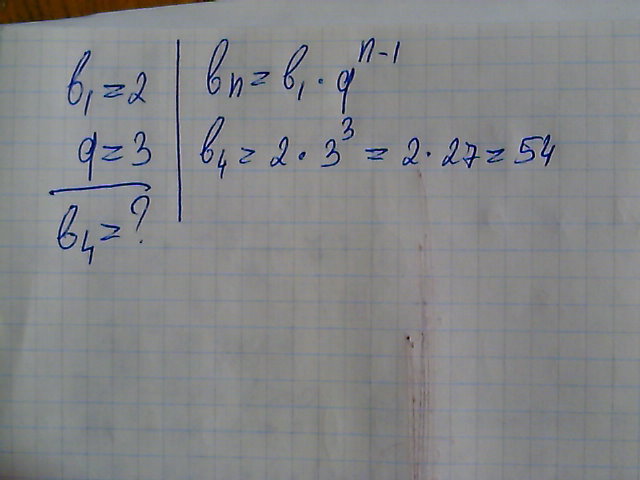 b₁ = 2
q = 3
b₄ = ?
bₙ = b₁ · qⁿ⁻¹
b₄ = 2 · 3³ = 2 · 27 = 54